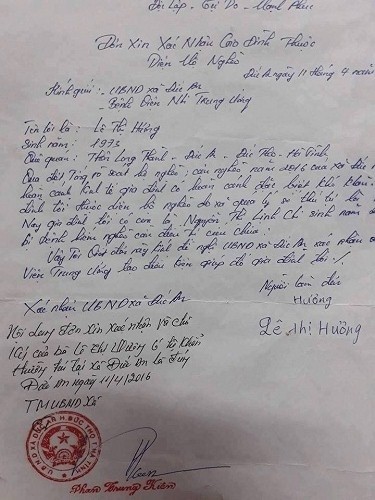 Độc Lập - Tự Do - Hạnh Phúc
Đơn Xin Xác Nhận Cao Đình Thuộc
Diện Hộ Nghèo
Đức An ngày 11 tháng 4 năm
Kính gửi: - UBND xã Đức An
- Bệnh Viện Nhi Trung Ương
Tên tôi là: Lê Thị Hường
Sinh năm: 1973
Quê quán: Thôn Long Thành - Đức An - Đức Thọ - Hà Tĩnh
Qua đợt Tổng rà soát hộ nghèo, cận nghèo năm 2016 của xã Đức
hoàn cảnh kinh tế gia đình có hoàn cảnh đặc biệt khó khăn
đình tôi thuộc diện hộ nghèo do xã quản lý
Nay gia đình tôi có con là Nguyễn Thị Linh Chi sinh năm
bị bệnh hiểm nghèo cần điều trị cứu chữa!
Vậy Tôi viết đơn này kính đề nghị UBND xã Đức An xác nhận
Viện Trung Ương tạo điều kiện giúp đỡ gia đình tôi./.
Người làm đơn
Hường
Lê Thị Hường
Xác nhận UBND xã Đức An
Nội dung đơn xin xác nhận và chữ
ký của bà Lê Thị Hường có hộ khẩu
thường trú tại xã Đức An là đúng
Đức An ngày 11/4/2016
TM UBND Xã
Phan Trung Kiên